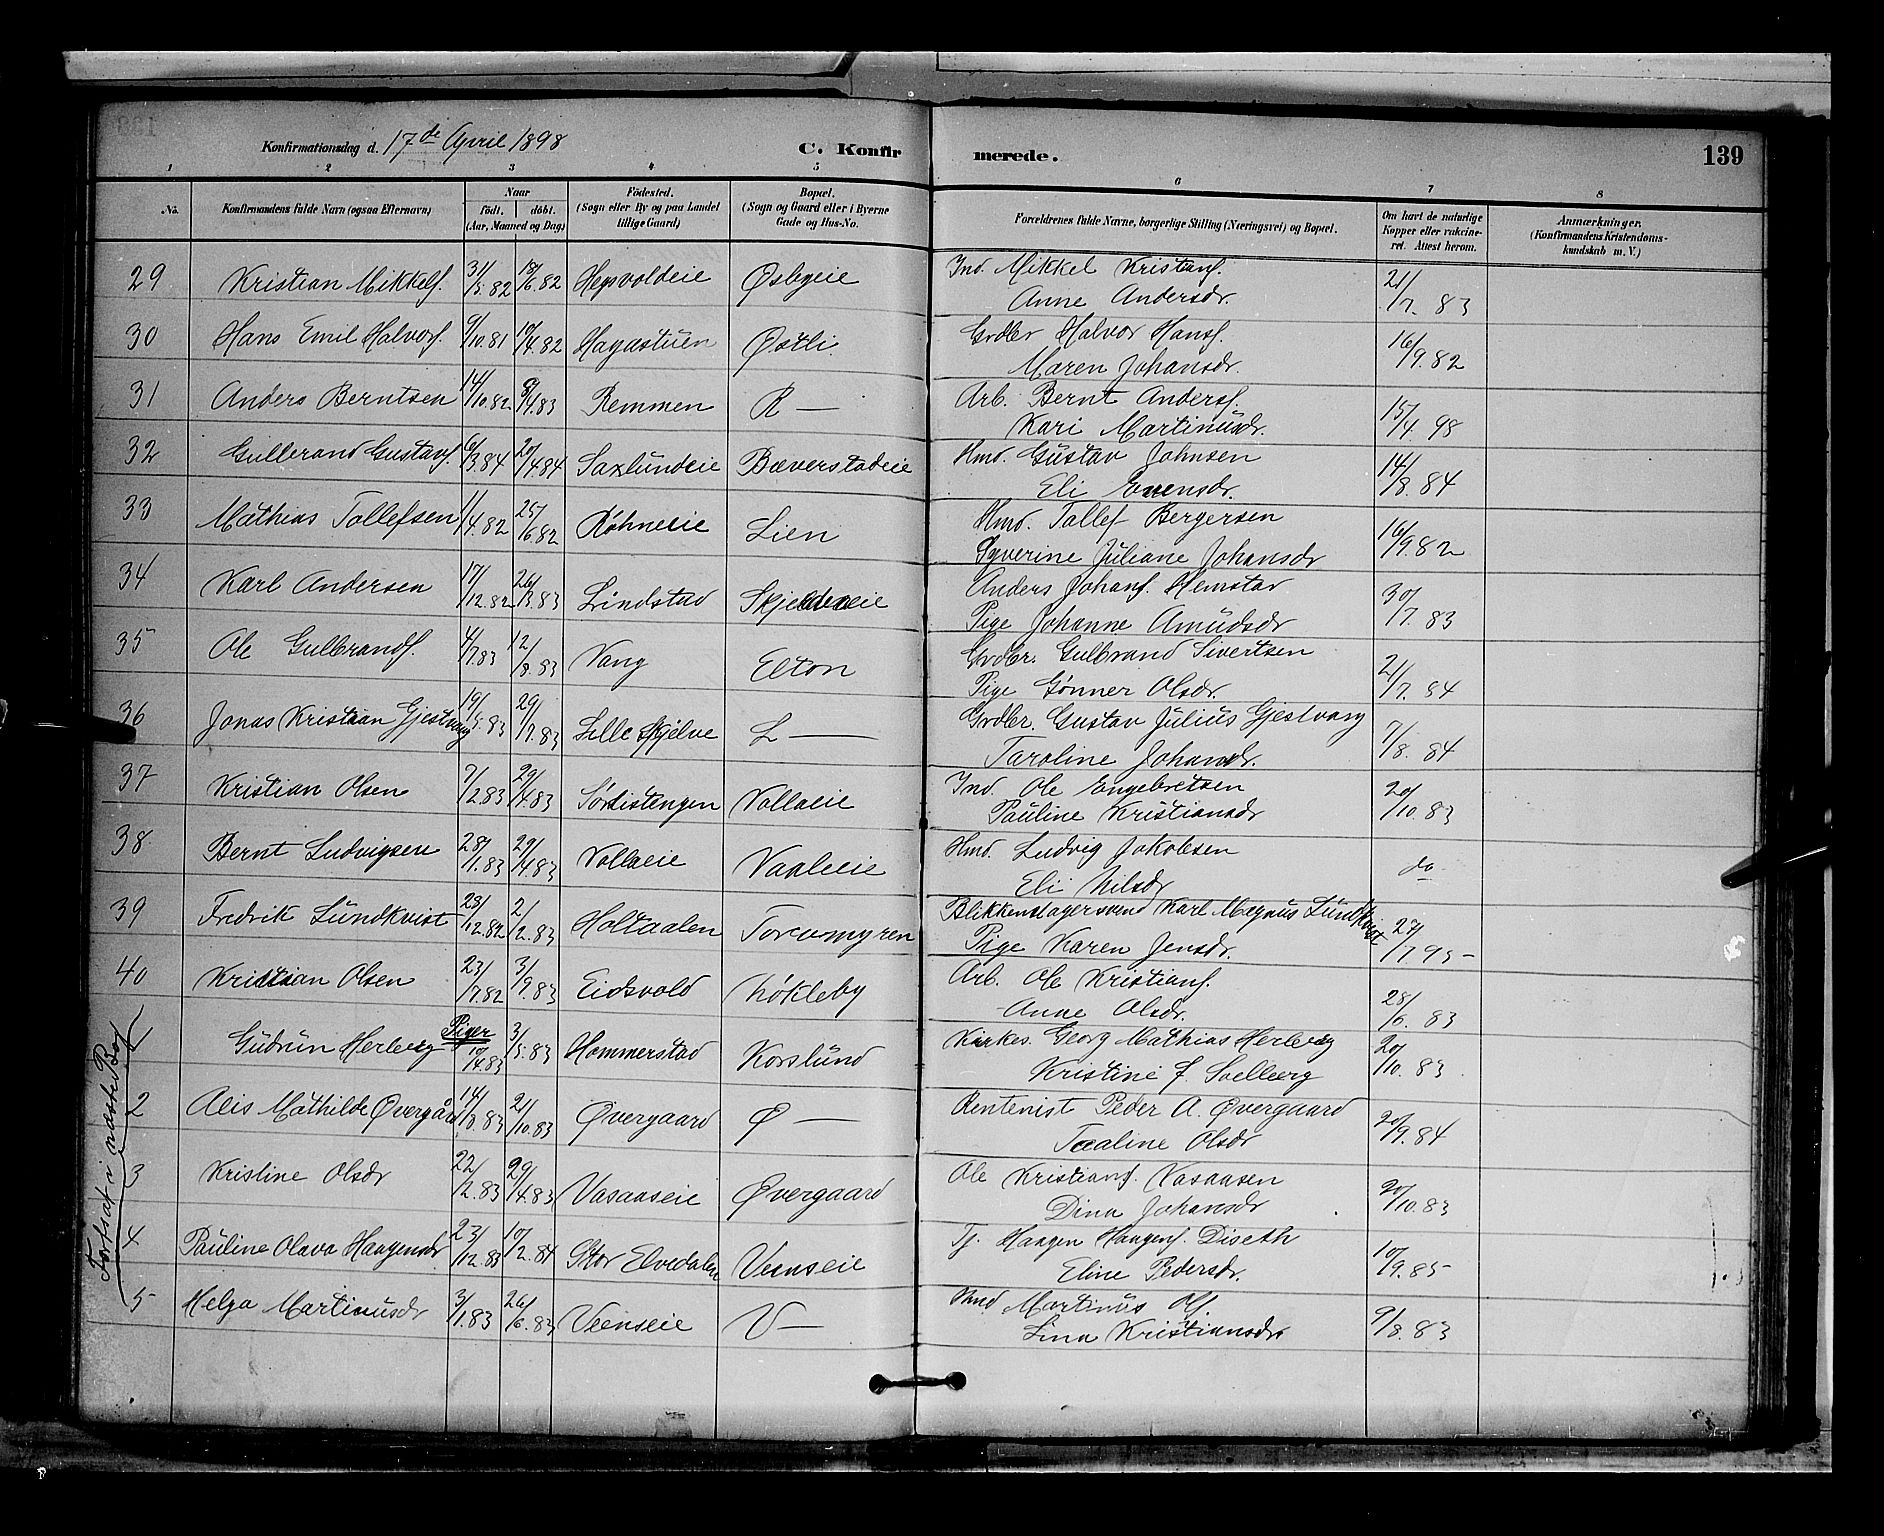 Konfirmationsdag d. 17de April 1898 C. Konfir merede. 139
1 2 3 4 5 6 7 8
No. Konfirmandens fulde Navn (ogsaa Efternavn) Naar født. døbt. (Aar, Maaned og Dag) Fødested. (Sogn eller By og paa Landet tillige Gaard) Bopæl. (Sogn og Gaard eller i Byerne Gade og Hus-No. Forældrenes fulde Navne, borgerlige Stilling (Næringsvei) og Bopæl. Om havt de naturlige Kopper eller vakcineret. Attest herom. Anmærkninger. (Konfirmandens Kristendomskundskab m. V.)
29 Kristian Mikkels. 31/5.82 18/6.82 Hepsvoldeie Østbyeie Ind. Mikkel Kristians. 21/7.83
Anne Andersdr.
30 Hans Emil Halvors. 9/10.81 10/4.82 Hagastuen Østli. Grdbr Halvor Hans. 16/9.82
Maren Johansdr.
31 Anders Berntsen 14/10.82 8/4.83 Remmen R — Arb. Bernt Anders. 15/4.98
Kari Martinusdr.
32 Gulbrand Gustavs. 6/3.84 20/4.84 Saxlundeie Bæverstadeie Hmd. Gustav Johnsen 14/8.84
Eli Evensdr.
33 Mathias Tollefsen 11/4.82 25/6.82 Røhneeie Lien Hmd. Tollef Bergersen 16/9.82
Syverine Juliane Johansdr
34 Karl Andersen 17/12.82 26/3.83 Lindstad Skjelveeie Anders Johans. Hemstad 30/7.83
Pige Johanne Amundsdr
35 Ole Gulbrands. 4/7.83 12/8.83 Vang Elton Grdbr. Gulbrand Sivertsen 21/7.84
Pige Gønner Olsdr.
36 Jonas Kristian Gjestvang 19/5.83 29/7.83 Lille Skjelve L — Grdbr. Gustav Julius Gjestvang 7/8.84
Karoline Johansdr.
37 Kristian Olsen 7/2.83 29/4.83 Sørlistengen Vollaeie Ind. Ole Engebretsen 20/10.83
Pauline Kristiansdr
38 Bernt Ludvigsen 28/1.83 29/4.83 Vollaeie Vaaleeie Hmd. Ludvig Jakobsen do
Eli Nilsdr
39 Fredrik Lundkvist 23/12.82 2/2.83 Holtaalen Torvmyren Blikkenslagersvend Karl Magnus Lundkvist 27/7 95
Pige Karen Jensdr.
40 Kristian Olsen 23/7.82 3/9.83 Eidsvold Løkleby Arb. Ole Kristians. 28/6.83
Anne Olsdr.
Piger
1 Gudrun Herberg 10/4.83 3/5.83 Hommerstad Korslund Kirkes. Georg Mathias Herberg 20/10.83
Kristine J. Solberg
2 Alis Mathilde Øvergård 14/8.83 21/10.83 Øvergaard Ø — Rentenist Peder A. Øvergaard 20/9.84
Olsdr
3 Kristine Olsdr 22/2.83 29/4.83 Vasaaseie Øvergaard Ole Kristians. Vasaasen 20/10.83
Dina Johansdr
4 Pauline Olava Haagensdr. 23/12.83 10/2.84 Stor Elvedalen Veenseie Tj. Haagen Haagens. Diseth 10/9.85
Eline Pedersdr.
5 Helga Martinusdr 3/1.83 26/6.83 Veenseie V — Hmd Martinus Ols. 9/8.83
Lina Kristiansdr
Fortsat i næste Bog